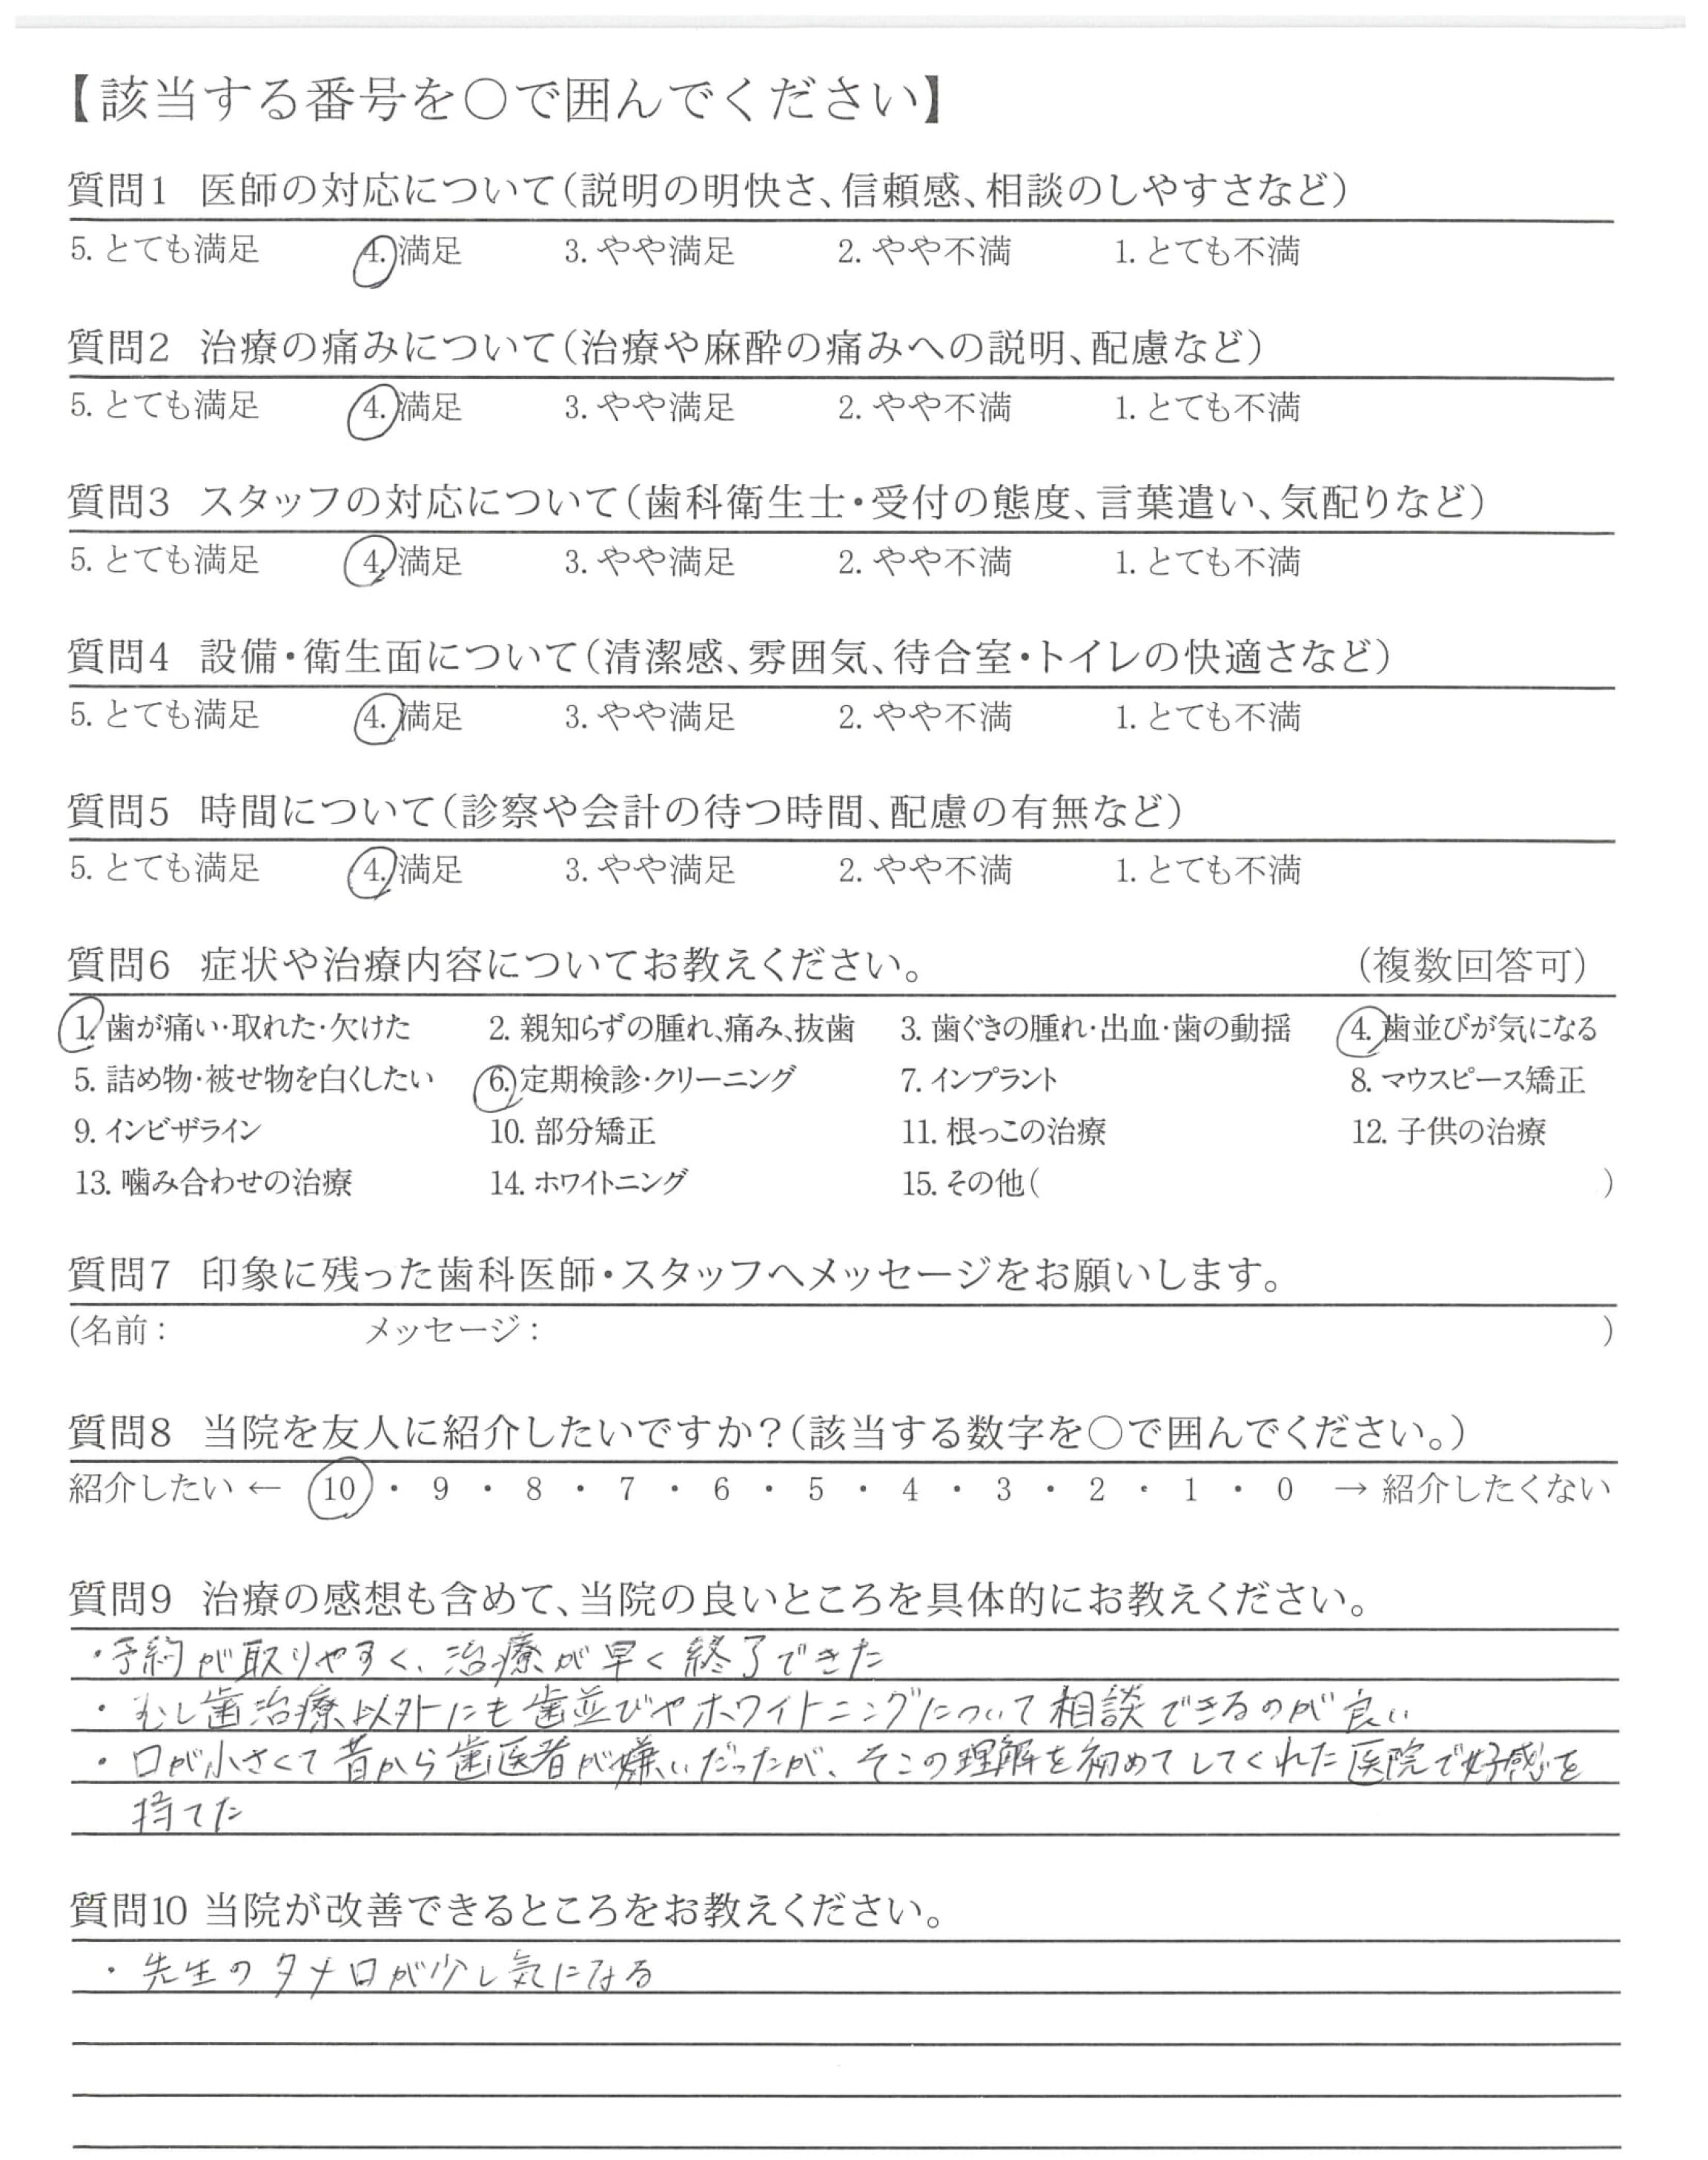 【該当する番号を○で囲んでください】
質問1 医師の対応について(説明の明快さ、信頼感、相談のしやすさなど)
5. とても満足 4. 満足 3. やや満足 2. やや不満 1. とても不満
質問2 治療の痛みについて(治療や麻酔の痛みへの説明、配慮など)
5. とても満足 4. 満足 3. やや満足 2. やや不満 1. とても不満
質問3 スタッフの対応について(歯科衛生士・受付の態度、言葉遣い、気配りなど)
5. とても満足 4. 満足 3. やや満足 2. やや不満 1. とても不満
質問4 設備・衛生面について(清潔感、雰囲気、待合室・トイレの快適さなど)
5. とても満足 4. 満足 3. やや満足 2. やや不満 1. とても不満
質問5 時間について(診察や会計の待つ時間、配慮の有無など)
5. とても満足 4. 満足 3. やや満足 2. やや不満 1. とても不満
質問6 症状や治療内容についてお教えください。 (複数回答可)
1. 歯が痛い・取れた・欠けた 2. 親知らずの腫れ、痛み、抜歯 3. 歯ぐきの腫れ・出血・歯の動揺 4. 歯並びが気になる
5. 詰め物・被せ物を白くしたい 6. 定期検診・クリーニング 7. インプラント 8. マウスピース矯正
9. インビザライン 10. 部分矯正 11. 根っこの治療 12. 子供の治療
13. 噛み合わせの治療 14. ホワイトニング 15. その他( )
質問7 印象に残った歯科医師・スタッフへメッセージをお願いします。
(名前: メッセージ: )
質問8 当院を友人に紹介したいですか?(該当する数字を○で囲んでください。)
紹介したい ← 10 ・ 9 ・ 8 ・ 7 ・ 6 ・ 5 ・ 4 ・ 3 ・ 2 ・ 1 ・ 0 → 紹介したくない
質問9 治療の感想も含めて、当院の良いところを具体的にお教えください。
・予約が取りやすく、治療が早く終了できた
・むし歯治療以外にも歯並びやホワイトニングについて相談できるのが良い
・口が小さくて昔から歯医者が嫌いだったが、そこの理解を初めてしてくれた医院で好感を
持てた
質問10 当院が改善できるところをお教えください。
・先生のタメ口が少し気になる